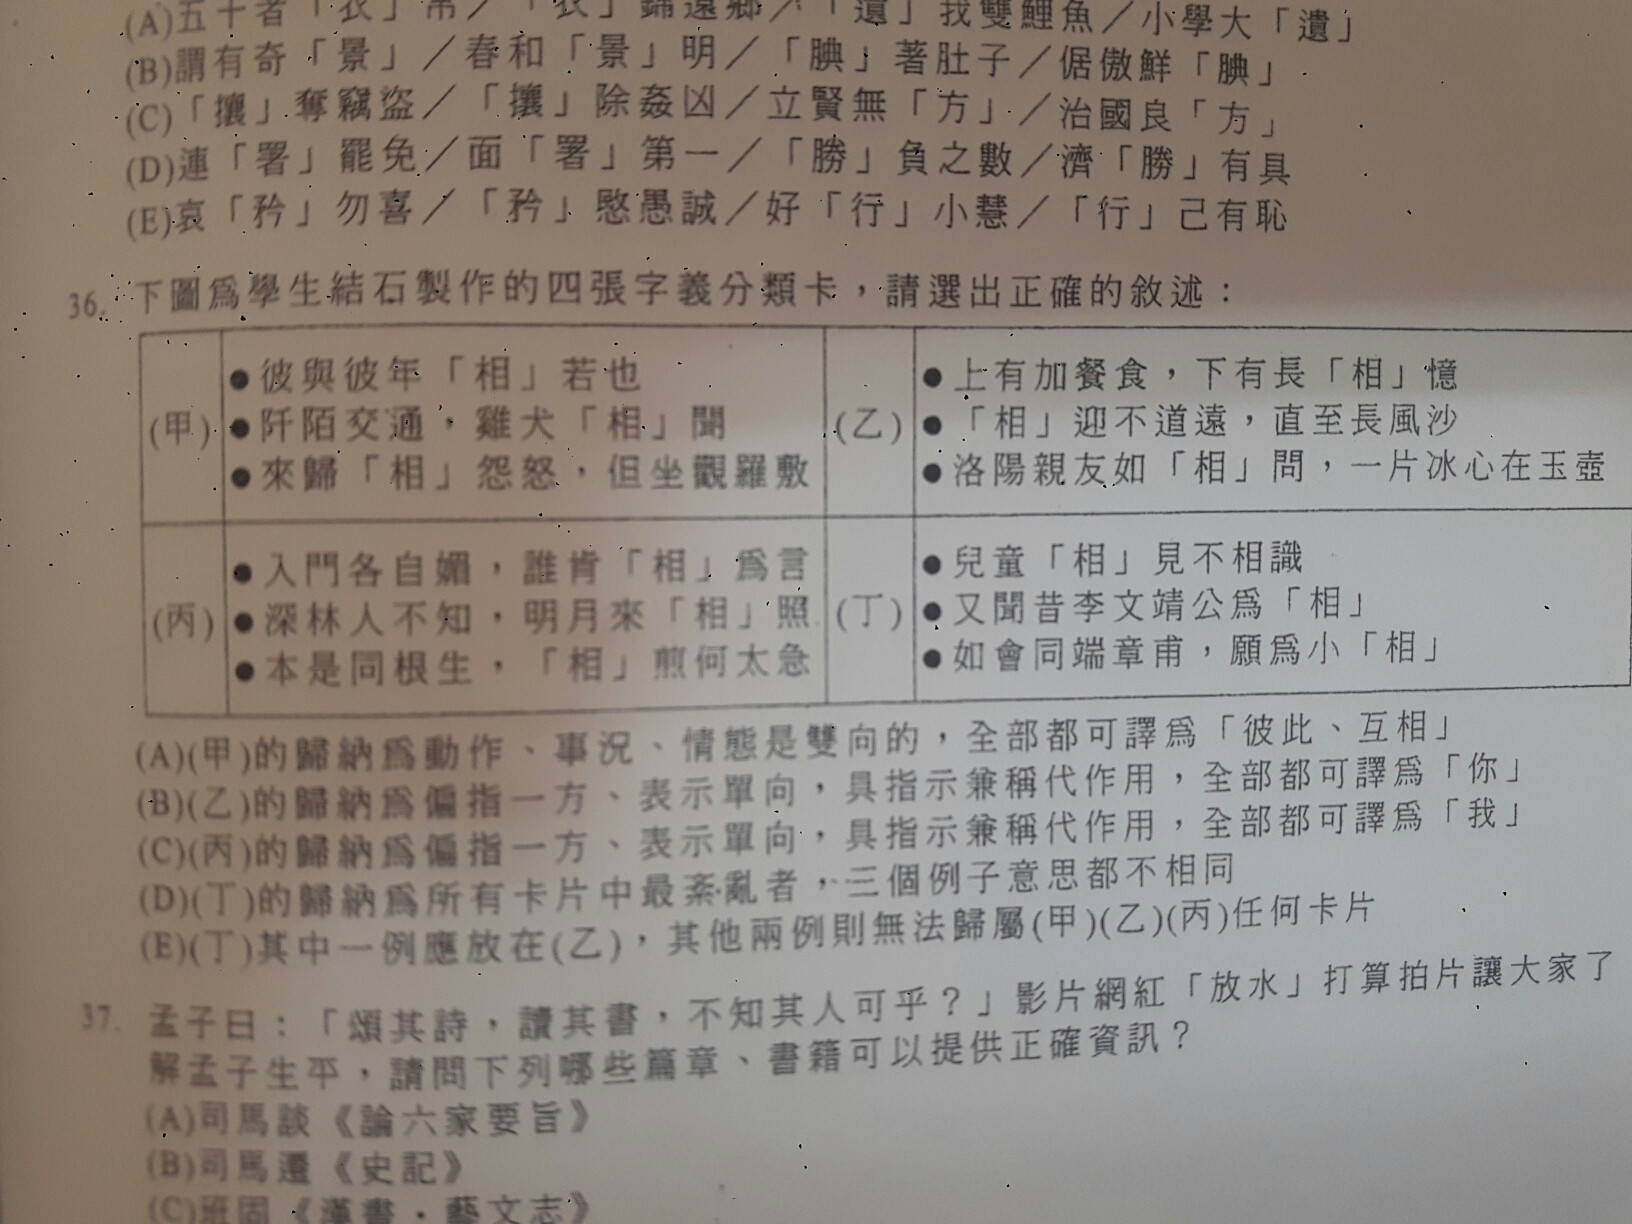 (A)五十者「衣」帛／「衣」錦還鄉／「遺」我雙鯉魚／小學大「遺」
(B)謂有奇「景」／春和「景」明／「腆」著肚子／倨傲鮮「腆」
(C)「攘」奪竊盜／「攘」除姦凶／立賢無「方」／治國良「方」
(D)連「署」罷免／面「署」第一／「勝」負之數／濟「勝」有具
(E)哀「矜」勿喜／「矜」愍愚誠／好「行」小慧／「行」己有恥
36. 下圖為學生結石製作的四張字義分類卡，請選出正確的敘述：
(甲)
●彼與彼年「相」若也
●阡陌交通，雞犬「相」聞
●來歸「相」怨怒，但坐觀羅敷
(乙)
●上有加餐食，下有長「相」憶
●「相」迎不道遠，直至長風沙
●洛陽親友如「相」問，一片冰心在玉壺
(丙)
●入門各自媚，誰肯「相」為言
●深林人不知，明月來「相」照
●本是同根生，「相」煎何太急
(丁)
●兒童「相」見不相識
●又聞昔李文靖公為「相」
●如會同端章甫，願為小「相」
(A)(甲)的歸納為動作、事況、情態是雙向的，全部都可譯為「彼此、互相」
(B)(乙)的歸納為偏指一方、表示單向，具指示兼稱代作用，全部都可譯為「你」
(C)(丙)的歸納為偏指一方、表示單向，具指示兼稱代作用，全部都可譯為「我」
(D)(丁)的歸納為所有卡片中最紊亂者，三個例子意思都不相同
(E)(丁)其中一例應放在(乙)，其他兩例則無法歸屬(甲)(乙)(丙)任何卡片
37. 孟子曰：「頌其詩，讀其書，不知其人可乎？」影片網紅「放水」打算拍片讓大家了
解孟子生平，請問下列哪些篇章、書籍可以提供正確資訊？
(A)司馬談《論六家要旨》
(B)司馬遷《史記》
(C)班固《漢書．藝文志》